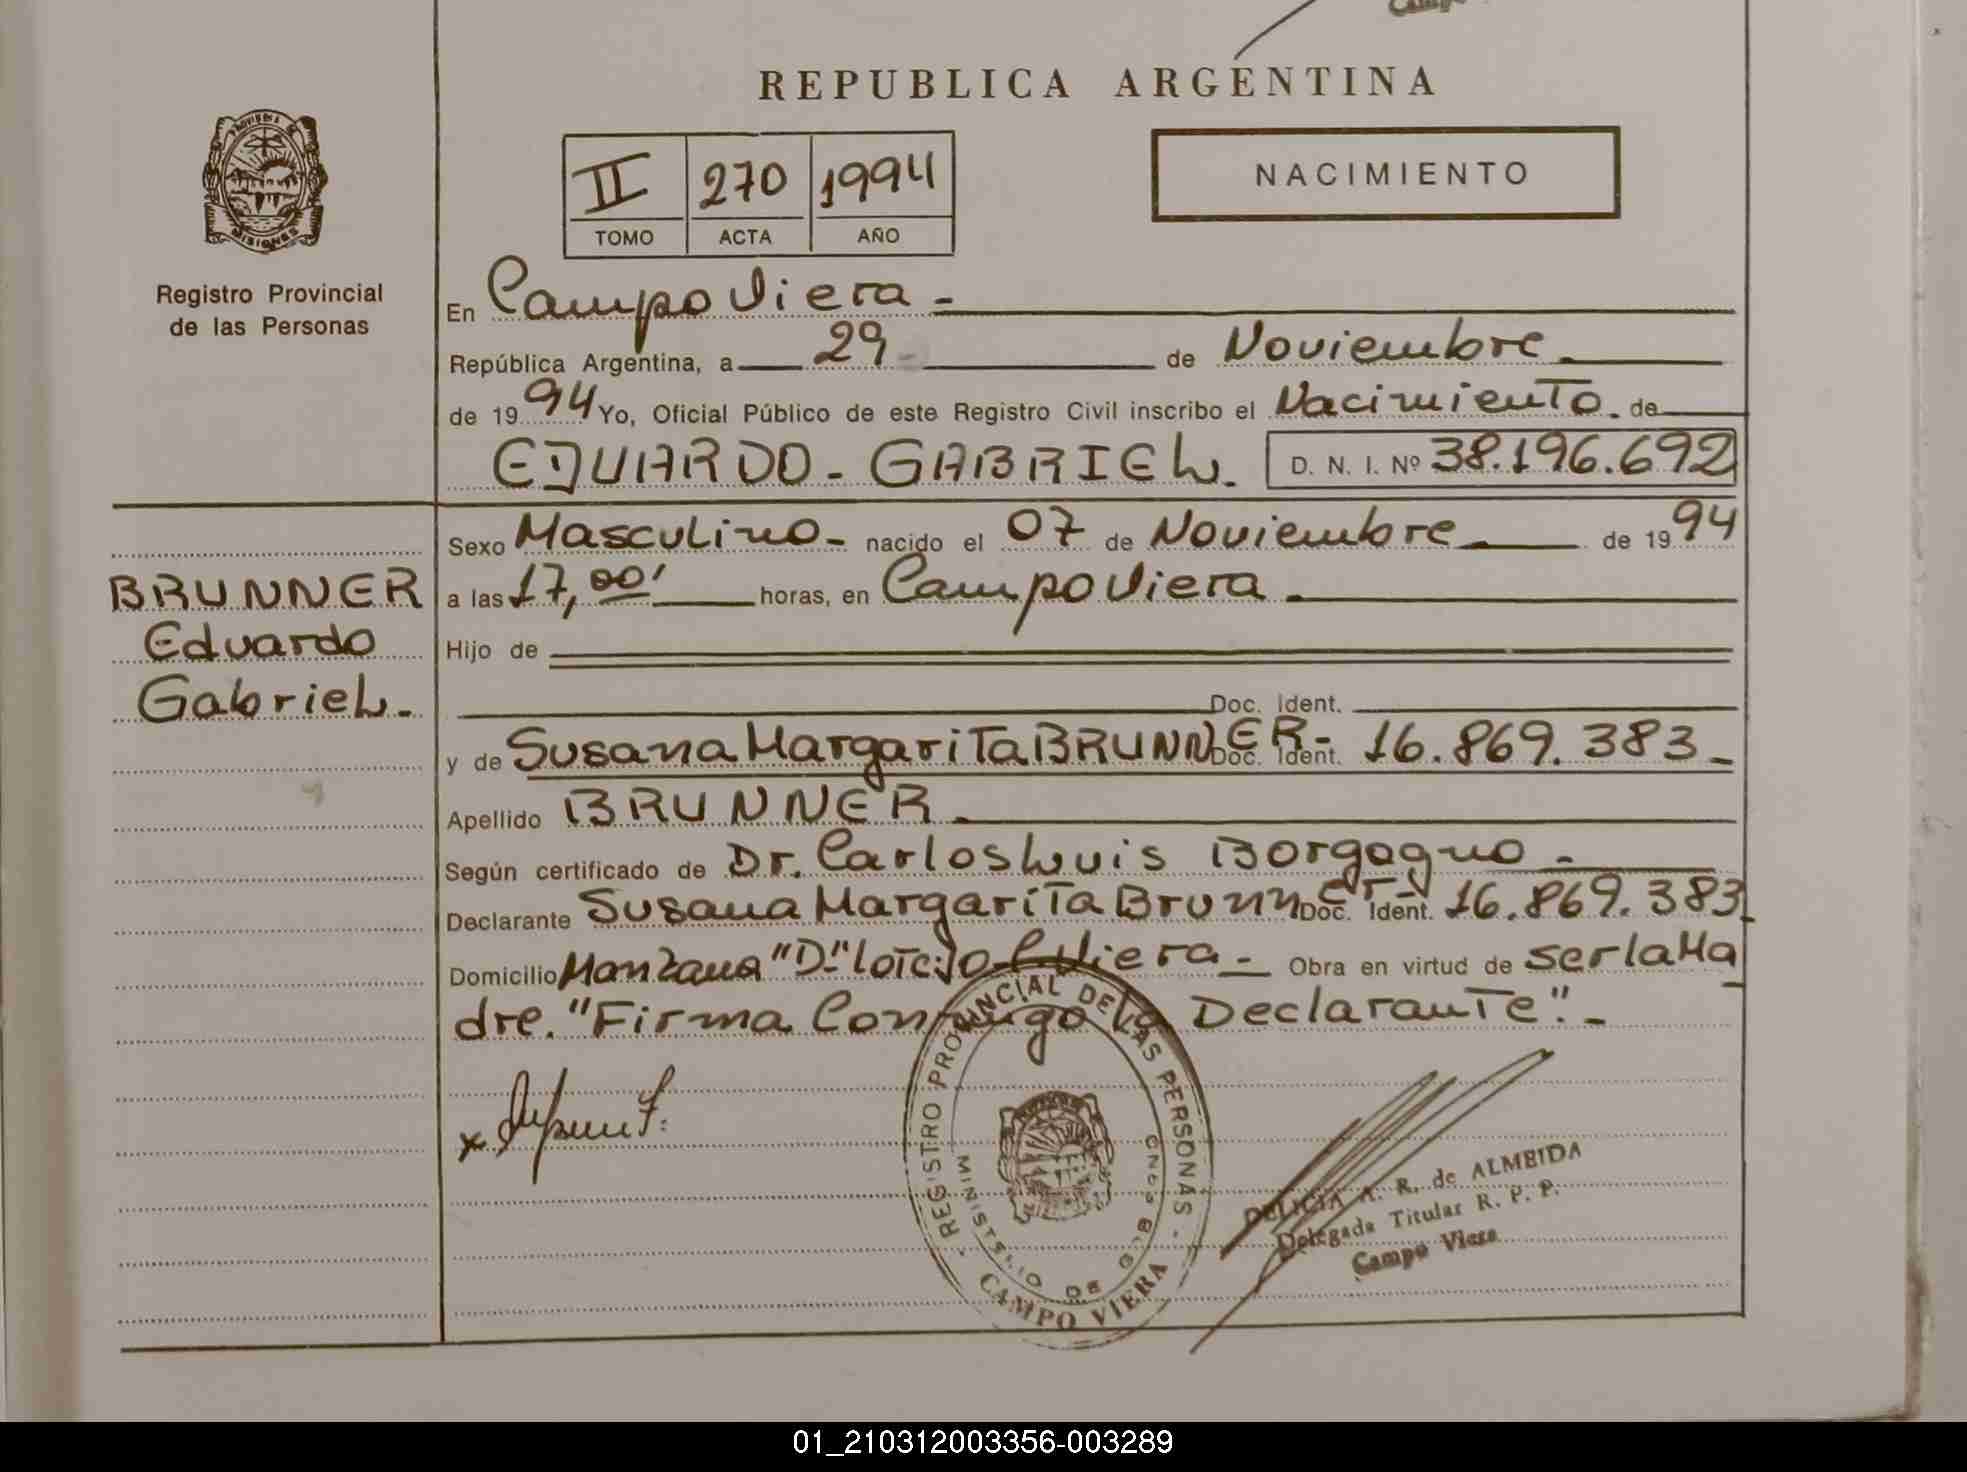 Campo
REPUBLICA ARGENTINA
PROVINCIA DE
MISIONES
Registro Provincial
de las Personas
II 270 1994
TOMO ACTA AÑO
NACIMIENTO
En Campo Viera -
República Argentina, a 29 - de Noviembre.
de 1994 Yo, Oficial Público de este Registro Civil inscribo el Nacimiento. de
EDUARDO - GABRIEL. D. N. I. Nº 38.196.692
BRUNNER
Eduardo
Gabriel.-
Sexo Masculino - nacido el 07 de Noviembre de 1994
a las 17,00' horas, en Campo Viera.
Hijo de
Doc. Ident.
y de Susana Margarita BRUNNER - Doc. Ident. 16.869.383 -
Apellido BRUNNER.
Según certificado de Dr. Carlos Luis Borgogno -
Declarante Susana Margarita Brunner - Doc. Ident. 16.869.383
Domicilio Manzana "D" Viera - Obra en virtud de ser la Ma
dre. "Firma Conmigo la Declarante".-
REGISTRO PROVINCIAL DE LAS PERSONAS -
MINISTERIO DE
CAMPO VIERA
DELICIA A. R. de ALMEIDA
Delegada Titular R. P. P.
Campo Viera
01_210312003356-003289